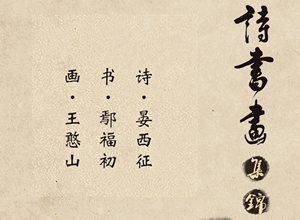 詩書畫
集錦
诗·晏西征
书·鄢福初
画·王憨山